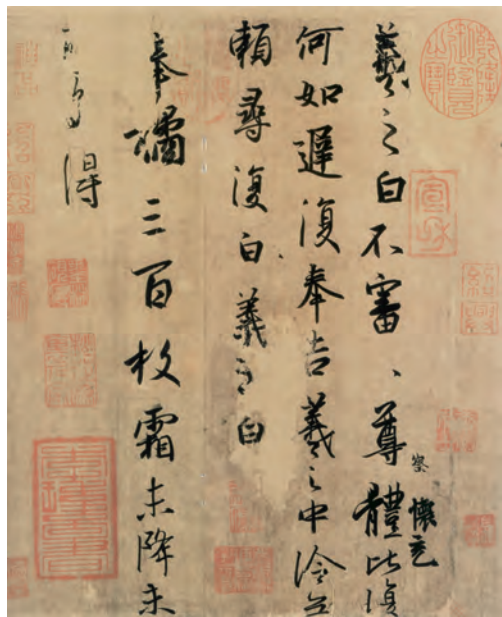 羲之白不審、尊體比復
察 懷充
何如遲復奉告羲之中冷無
賴尋復白羲之白
奉橘三百枚霜未降未
可多得
宣和
紹興